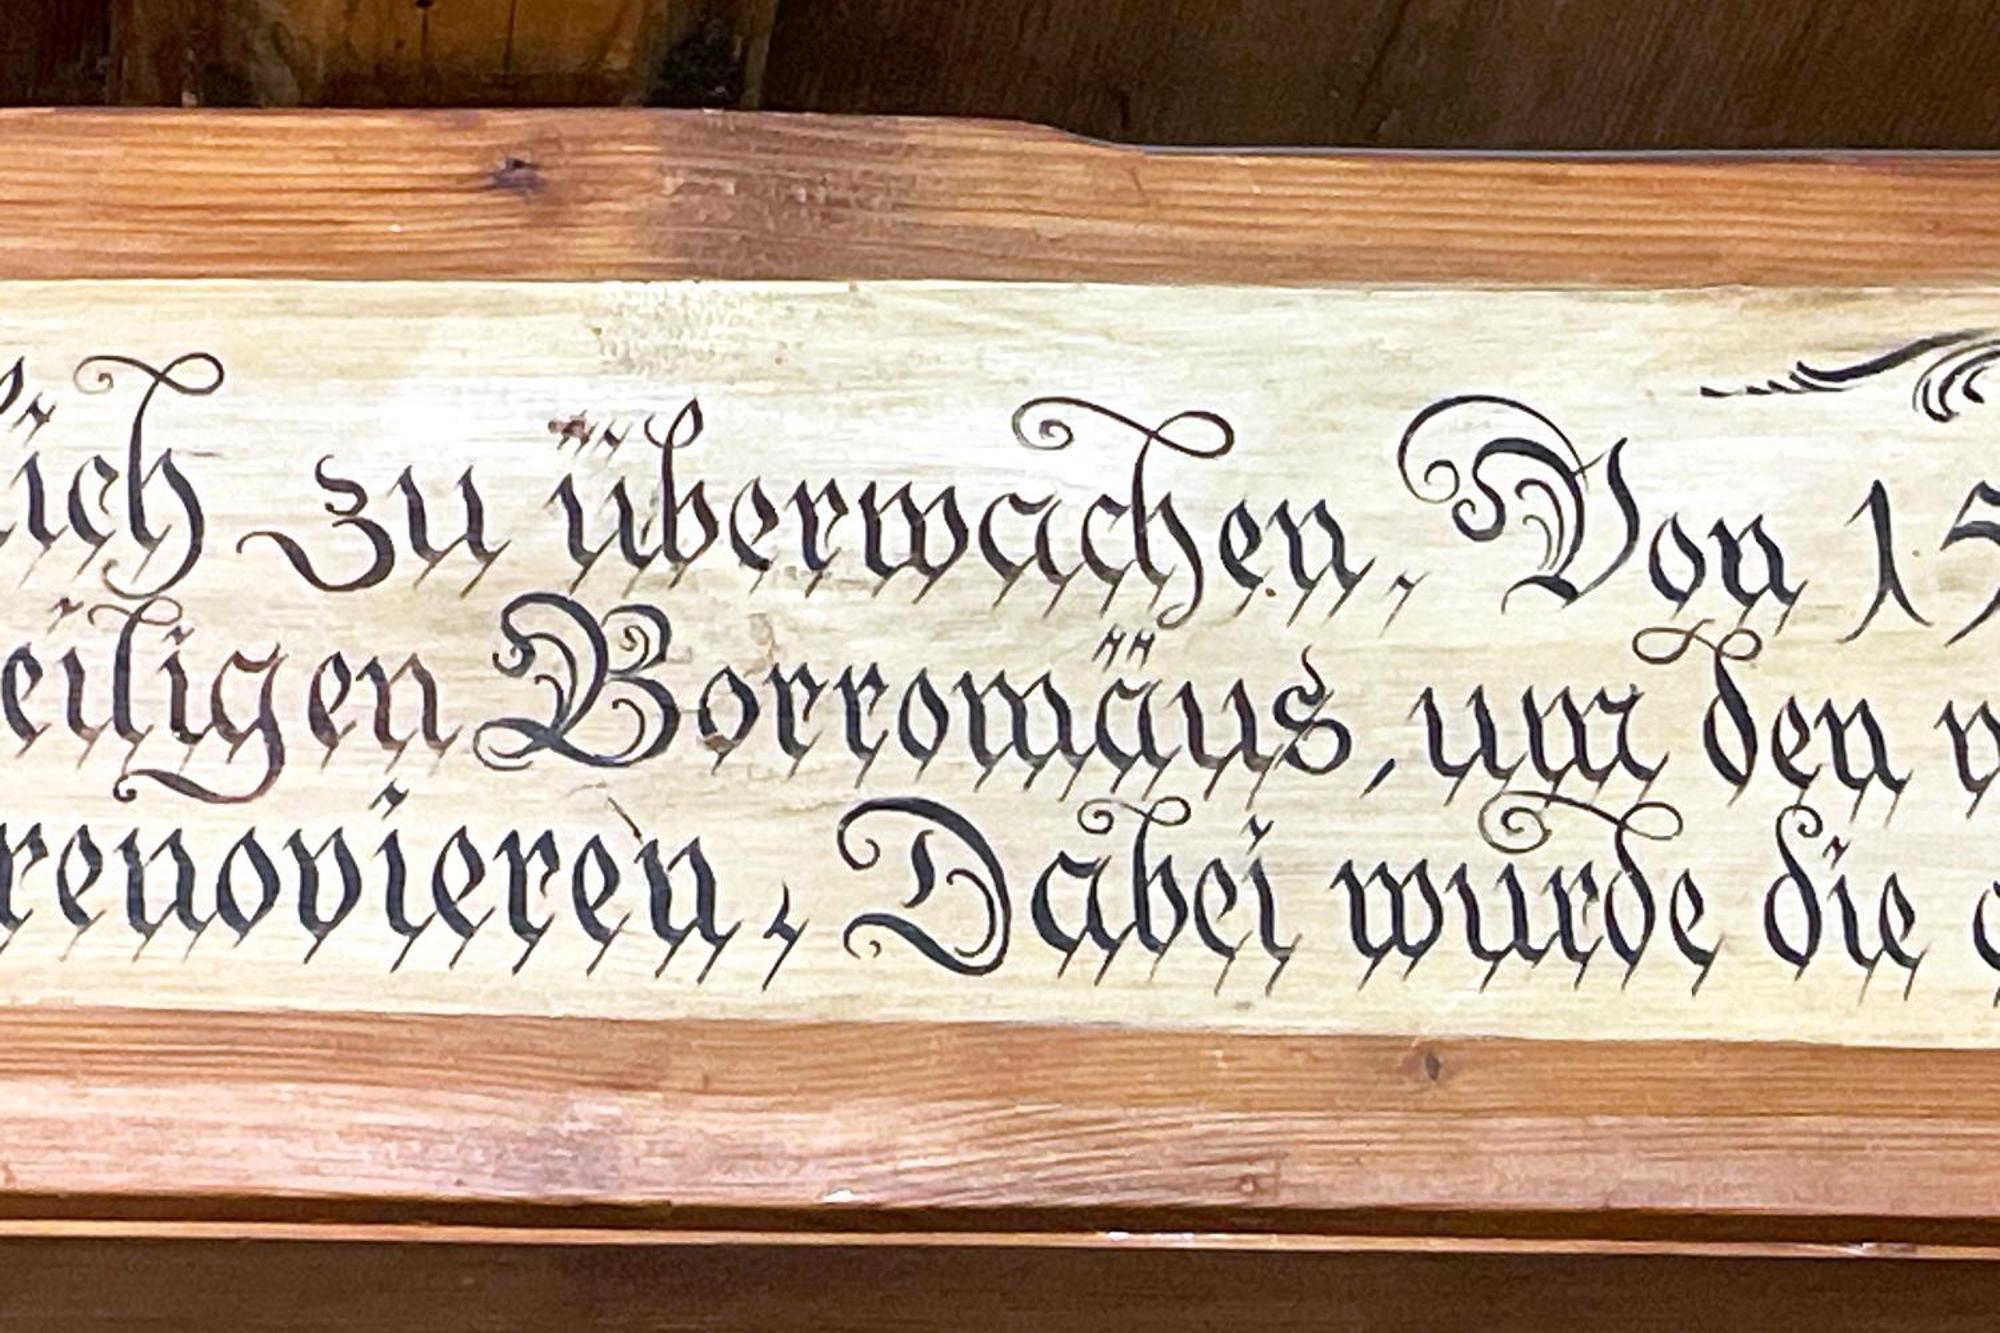 zu überwachen. Von 15
eiligen Borromäus, um den
renovieren. Dabei wurde die